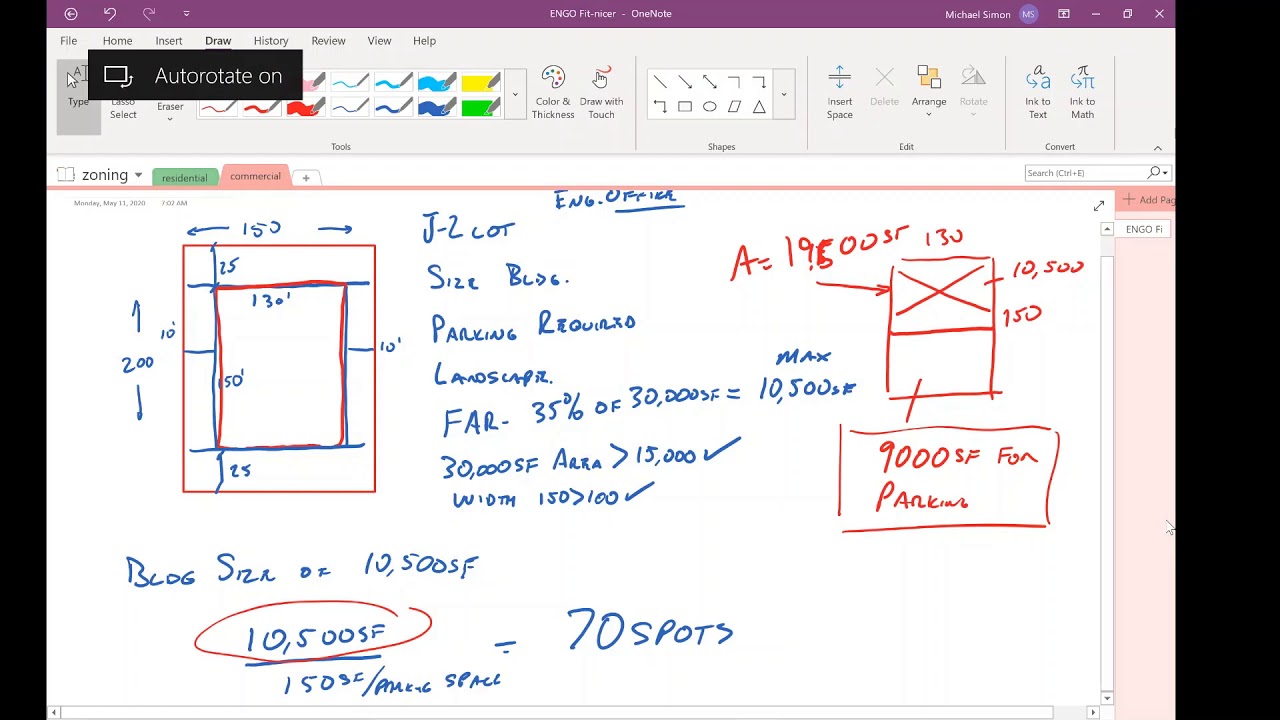 ENGO Fit-nicer - OneNote
Michael Simon MS
File Home Insert Draw History Review View Help
Autorotate on
Type
Lasso Select
Eraser
Color & Thickness
Draw with Touch
Insert Space
Delete
Arrange
Rotate
Ink to Text
Ink to Math
Tools Shapes Edit Convert
zoning residential commercial +
Search (Ctrl+E)
Monday, May 11, 2020 7:02 AM
+ Add Pag
ENGO Fi
ENG. OFFICE
150
J-2 LOT
25
130'
10'
200
150'
10'
25
SIZE BLDG.
PARKING REQUIRED
LANDSCAPE.
MAX
FAR- 35% OF 30,000SF = 10,500SF
30,000SF AREA > 15,000 ✓
WIDTH 150>100 ✓
130
10,500
150
9000SF FOR
PARKING
BLDG SIZE OF 10,500SF
10,500SF
150SF/PARKING SPACE
= 70SPOTS